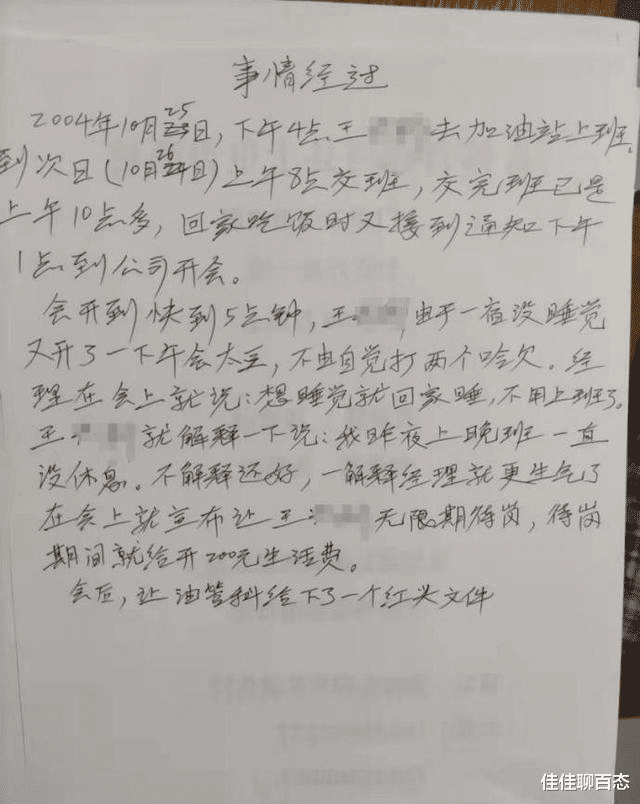 事情经过
2004年10月25日，下午4点王去加油站上班，
到次日(10月26日)上午8点交班，交完班已是
上午10点多，回家吃饭时又接到通知下午
1点到公司开会。
会开到快到5点钟，王，由于一宿没睡觉
又开了一下午会太乏，不由自觉打两个哈欠。经
理在会上就说：想睡觉就回家睡，不用上班了。
王就解释一下说：我昨夜上晚班一直
没休息。不解释还好，一解释经理就更生气了
在会上就宣布让王无限期待岗，待岗
期间就给开200元生活费。
会后，让油管科给下了一个红头文件
佳佳聊百态